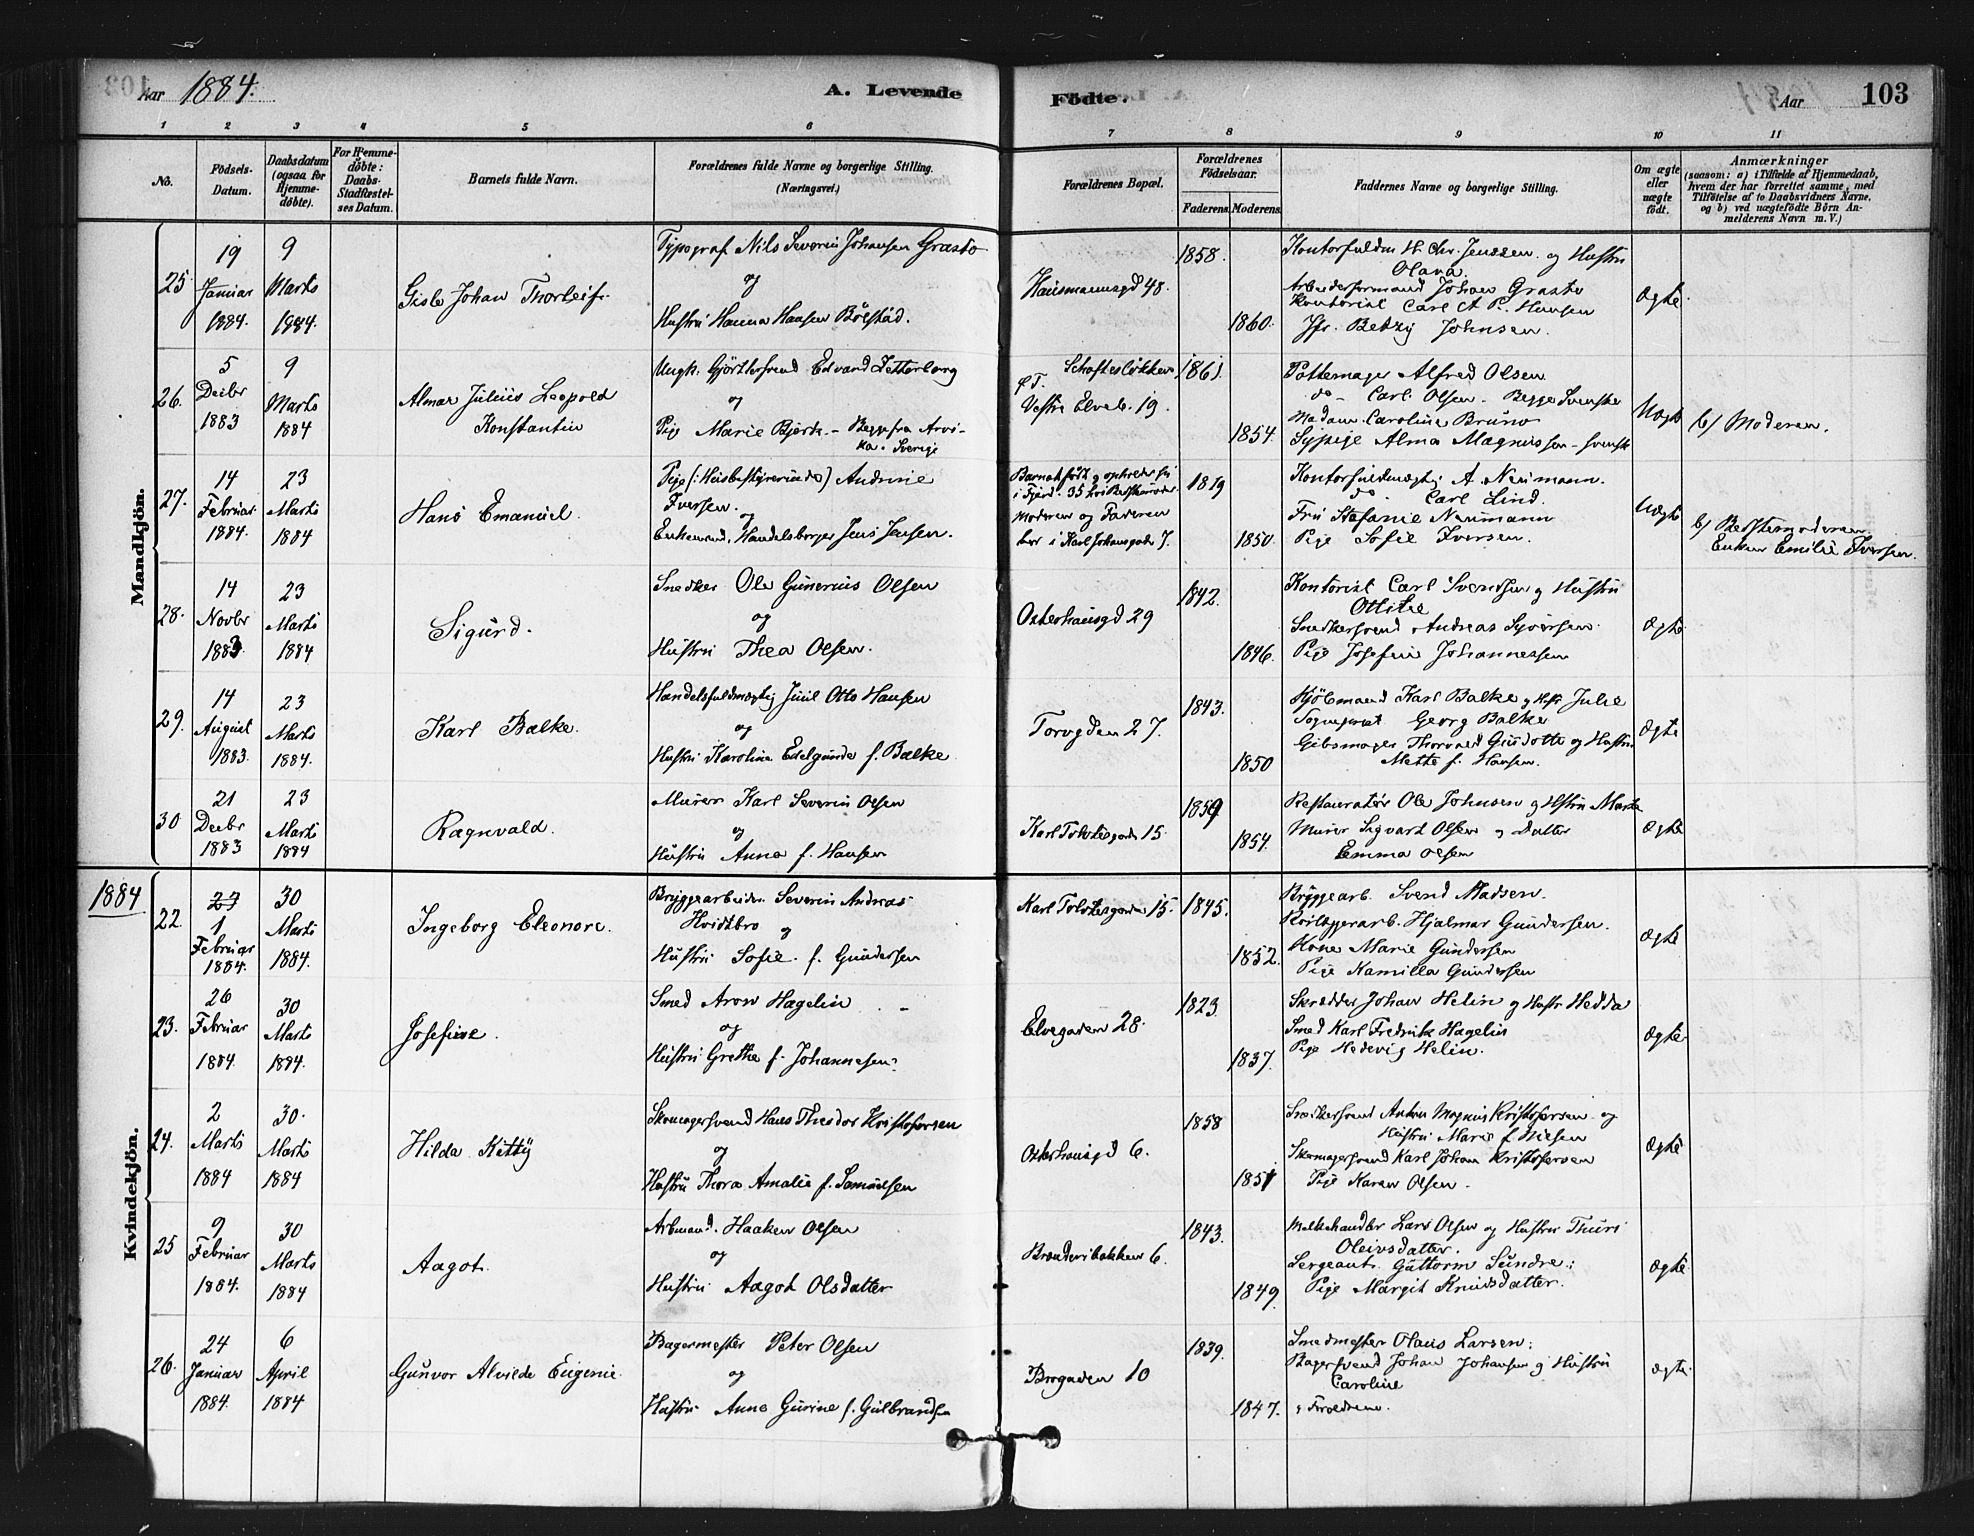 Aar 1884.
A. Levende
Födte.
Aar
103
1 2 3 4 5 6 7 8 9 10 11
No.
Födsels-
Datum.
Daabsdatum
(ogsaa for
Hjemme-
döbte).
For Hjemme-
döbte:
Daabs-
Stadfæstel-
ses Datum.
Barnets fulde Navn.
Forældrenes fulde Navne og borgerlige Stilling.
(Næringsvei.)
Forældrenes Bopæl.
Forældrenes
Födselsaar.
Faderens.
Moderens.
Faddernes Navne og borgerlige Stilling.
Om ægte
eller
uægte
födt.
Anmærkninger
(saasom: a) i Tilfælde af Hjemmedaab,
hvem der har forrettet samme, med
Tilföielse af to Daabsvidners Navne,
og b) ved uægtefödte Börn An-
melderens Navn m. V.)
Mandkjön.
25.
19
Januar
1884.
9
Marts
1884.
Gisle Johan Thorleif
Typograf Nils Severin Johansen Grastø
og
Hustru Hanna Hansen Bölstad.
Hausmannsgd 48.
1858.
1860.
Kontorfuldm H. Chr. Jenssen og Hustru
Olava.
Arbeidsformand Johan Grastø
Kontorist Carl A P. Hansen
Jfr. Betzy Johnsen.
Ægte
26.
5
Decbr
1883
9
Marts
1884
Almar Julius Leopold
Konstantin
Ungk. Gjörtlersvend Edvard Zetterberg
og
Pige Marie Bjørk - Begge fra Arvi-
ka. Sverige
Schaftesløkken
Vestre Elveb. 19.
1861.
1854.
Pottemager Alfred Olsen
do - Carl Olsen - Begge Svenske
Madam Caroline Bruno
Sypige Alma Magnusson - svensk
Uægte
b) Moderen.
27.
14
Februar
1884.
23
Marts
1884
Hans Emanuel.
Pige (: Husbestyrerinde) Andrine
Iversen.
og
Enkemand, Handelsborger Jens Jensen.
Barnet födt og opholder sig
i Fjerd. 35 hos Bedstemoder.
Moderen og Faderen
bor i Karl Johansgade 7.
1819
1850.
Kontorfuldmægtig A. Neumann.
do Carl Lind.
Fru Stefanie Neumann
Pige Sofie Iversen.
Uægte
b) Bedstemoderen
Enken Emilie Iversen.
28.
14
Novbr
1883.
23
Marts
1884
Sigurd.
Snedker Ole Gunerius Olsen
og
Hustru Thea Olsen.
Osterhausgd 29
1842.
1846.
Kontorist Carl Svendsen og Hustru
Ottilie
Snedkersvend Andreas Syversen.
Pige Josefine Johannessen
Ægte
29.
14
August
1883.
23
Marts
1884.
Karl Balke.
Handelsfuldmægtig Juul Otto Hansen
og
Hustru Karoline Edelgunde f. Balke
Torvgden 27.
1843.
1850
Kjöbmand Karl Balke og Hstr Julie
Sogneprest Georg Balke
Gibsmager Thorvald Guidotte og Hustru
Mette f. Hansen.
Ægte
30
21
Decbr
1883
23
Marts
1884
Ragnvald.
Murer Karl Severin Olsen
og
Hustru Anna f. Hansen
Karl Tolvtesgade 15.
1859
1854.
Restauratör Ole Johnsen og Hstru Marte
Murer Sigvart Olsen og Datter
Emma Olsen
Ægte
1884
Kvindekjön.
22.
27
1
Februar
1884.
30
Marts
1884.
Ingeborg Eleonore.
Bryggearbeider Severin Andreas
Hvidtbro og
Hustru Sofie. f. Gundersen
Karl Tolvtesgaden 15.
1845.
1852.
Bryggearb. Svend Madsen.
Hjalmar Gundersen.
Kone Marie Gundersen
Pige Kamilla Gundersen
Ægte
23.
26
Februar
1884.
30
Marts
1884.
Josefine.
Smed Aron Hagelin
og
Hustru Grethe f. Johannesen
Elvegaden 28.
1823.
1837.
Skrædder Johan Helin og Hustr Hedda
Smed Karl Fredrik Hagelin
Pige Hedevig Helin.
Ægte
24.
2
Marts
1884
30.
Marts
1884
Hilda Kitty
Skomagersvend Hans Theodor Kristofersen
og
Hustru Thora Amalie f. Samuelsen
Osterhausgd 6.
1858
1851
Snedkersvend Anton Magnus Kristofersen og
Hustru Marie f. Nielsen
Skomagersvend Karl Johan Kristofersen
Pige Karen Olsen.
Ægte
25
9
Februar
1884.
30
Marts
1884
Aagot.
Arbmand. Haaken Olsen
og
Hustru Aagot Olsdatter
Brænderibakken 6.
1843.
1849.
Melkehandler Lars Olsen og Hustru Thuri
Oleivsdatter.
Sergeant Guttorm Sundre;
Pige Margit Knudsdatter.
Ægte
26.
24
Januar
1884.
6
April
1884
Gunvor Alvilde Eugenie
Bagermester Peter Olsen
og
Hustru Anne Gurine f. Gulbrandsen
Brogaden 10
1839.
1847.
Smedmester Olaus Larsen;
Bagersvend Johan Johansen og Hustru
Caroline
& Forældrene.
Ægte